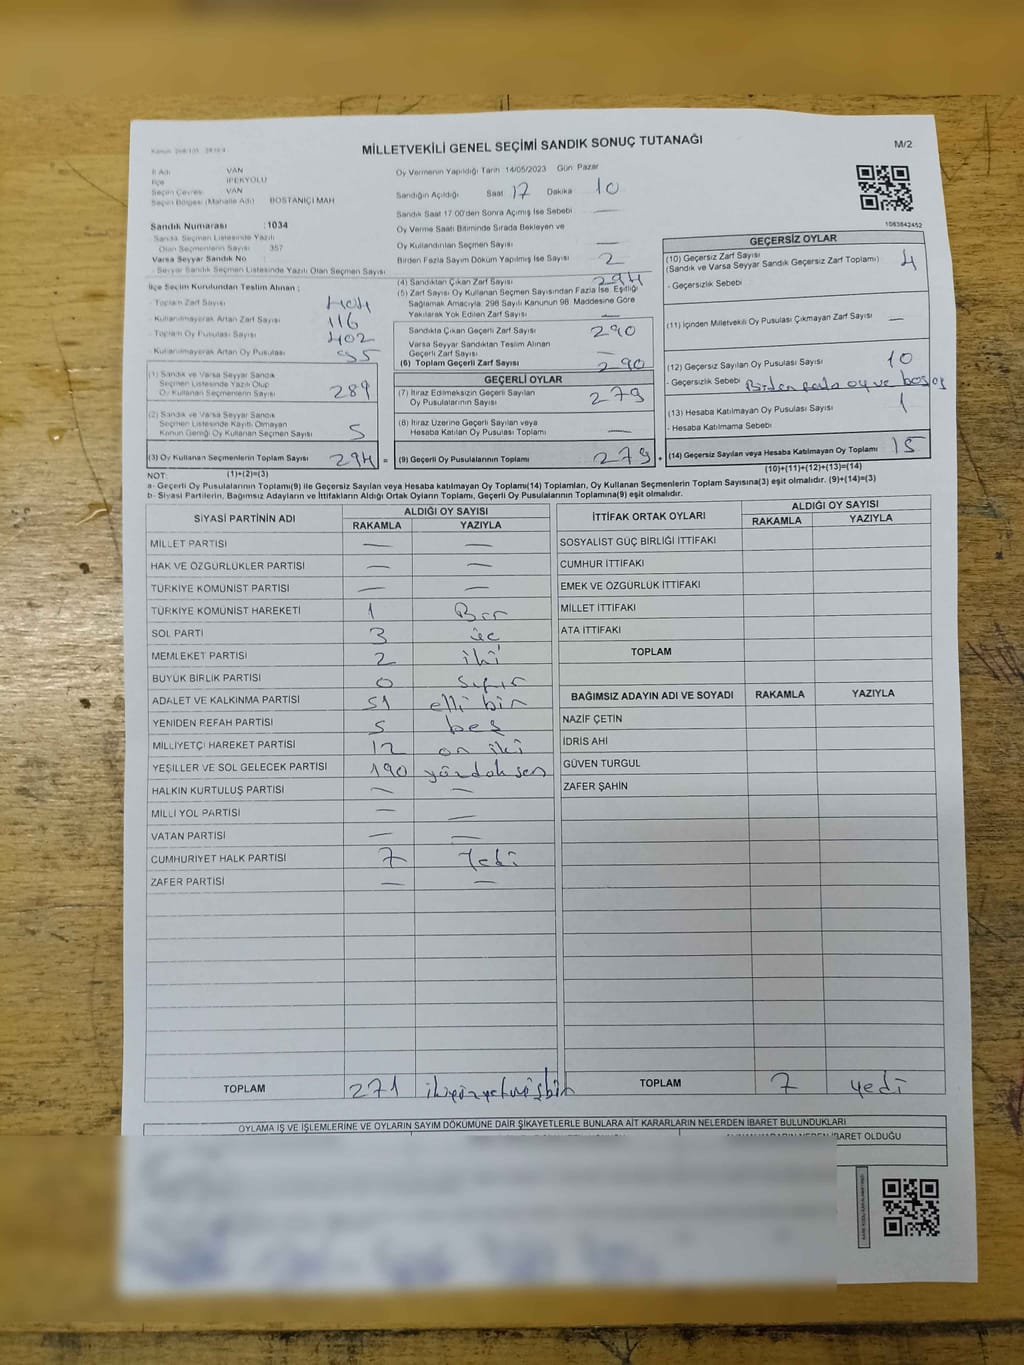 MİLLETVEKİLİ GENEL SEÇİMİ SANDIK SONUÇ TUTANAĞI
M/2
İl Adı VAN
İlçe İPEKYOLU
Seçim Çevresi VAN
Seçim Bölgesi (Mahalle Adı) BOSTANİÇİ MAH
Oy Vermenin Yapıldığı Tarih 14/05/2023 Gün Pazar
Sandığın Açıldığı Saat 17 Dakika 10
Sandık Saat 17 00'den Sonra Açımış İse Sebebi —
Oy Verme Saati Bitiminde Sırada Bekleyen ve
Oy Kullandırılan Seçmen Sayısı —
Birden Fazla Sayım Döküm Yapılmış İse Sayısı 2
1083842452
Sandık Numarası :1034
Sandık Seçmen Listesinde Yazılı
Olan Seçmenlerin Sayısı 357
Varsa Seyyar Sandık No :
Seyyar Sandık Seçmen Listesinde Yazılı Olan Seçmen Sayısı
İlçe Seçim Kurulundan Teslim Alınan ;
- Toplam Zarf Sayısı 404
- Kullanılmayarak Artan Zarf Sayısı 116
- Toplam Oy Pusulası Sayısı 402
- Kullanılmayarak Artan Oy Pusulası 95
(1) Sandık ve Varsa Seyyar Sandık
Seçmen Listesinde Yazılı Olup
Oy Kullanan Seçmenlerin Sayısı 289
(2) Sandık ve Varsa Seyyar Sandık
Seçmen Listesinde Kayıtlı Olmayan
Kanun Gereği Oy Kullanan Seçmen Sayısı 5
(3) Oy Kullanan Seçmenlerin Toplam Sayısı 294 =
(1)+(2)=(3)
(4) Sandıktan Çıkan Zarf Sayısı 294
(5) Zarf Sayısı Oy Kullanan Seçmen Sayısından Fazla İse, Eşitliği
Sağlamak Amacıyla, 298 Sayılı Kanunun 98. Maddesine Göre
Yakılarak Yok Edilen Zarf Sayısı —
Sandıkta Çıkan Geçerli Zarf Sayısı 290
Varsa Seyyar Sandıktan Teslim Alınan
Geçerli Zarf Sayısı —
(6) Toplam Geçerli Zarf Sayısı 290
GEÇERLİ OYLAR
(7) İtiraz Edilmeksizin Geçerli Sayılan
Oy Pusulalarının Sayısı 279
(8) İtiraz Üzerine Geçerli Sayılan veya
Hesaba Katılan Oy Pusulası Toplamı —
(9) Geçerli Oy Pusulalarının Toplamı 279 +
GEÇERSİZ OYLAR
(10) Geçersiz Zarf Sayısı 4
(Sandık ve Varsa Seyyar Sandık Geçersiz Zarf Toplamı)
- Geçersizlik Sebebi
(11) İçinden Milletvekili Oy Pusulası Çıkmayan Zarf Sayısı —
(12) Geçersiz Sayılan Oy Pusulası Sayısı 10
- Geçersizlik Sebebi Birden fazla oy ve boş oy
(13) Hesaba Katılmayan Oy Pusulası Sayısı 1
- Hesaba Katılmama Sebebi
(14) Geçersiz Sayılan veya Hesaba Katılmayan Oy Toplamı 15
(10)+(11)+(12)+(13)=(14)
NOT:
a- Geçerli Oy Pusulalarının Toplamı(9) ile Geçersiz Sayılan veya Hesaba katılmayan oy Toplamı(14) Toplamları, Oy Kullanan Seçmenlerin Toplam Sayısına(3) eşit olmalıdır. (9)+(14)=(3)
b- Siyasi Partilerin, Bağımsız Adayların ve İttifakların Aldığı Ortak Oyların Toplamı, Geçerli Oy Pusulalarının Toplamına(9) eşit olmalıdır.
SİYASİ PARTİNİN ADI ALDIĞI OY SAYISI
RAKAMLA YAZIYLA
MİLLET PARTİSİ — —
HAK VE ÖZGÜRLÜKLER PARTİSİ — —
TÜRKİYE KOMÜNİST PARTİSİ — —
TÜRKİYE KOMÜNİST HAREKETİ 1 Bir
SOL PARTİ 3 üç
MEMLEKET PARTİSİ 2 iki
BÜYÜK BİRLİK PARTİSİ 0 sıfır
ADALET VE KALKINMA PARTİSİ 51 elli bir
YENİDEN REFAH PARTİSİ 5 beş
MİLLİYETÇİ HAREKET PARTİSİ 12 on iki
YEŞİLLER VE SOL GELECEK PARTİSİ 190 yüzdoksan
HALKIN KURTULUŞ PARTİSİ — —
MİLLİ YOL PARTİSİ — —
VATAN PARTİSİ — —
CUMHURİYET HALK PARTİSİ 7 Yedi
ZAFER PARTİSİ — —
TOPLAM 271 ikiyüzyetmişbir
İTTİFAK ORTAK OYLARI ALDIĞI OY SAYISI
RAKAMLA YAZIYLA
SOSYALİST GÜÇ BİRLİĞİ İTTİFAKI
CUMHUR İTTİFAKI
EMEK VE ÖZGÜRLÜK İTTİFAKI
MİLLET İTTİFAKI
ATA İTTİFAKI
TOPLAM
BAĞIMSIZ ADAYIN ADI VE SOYADI RAKAMLA YAZIYLA
NAZİF ÇETİN
İDRİS AHİ
GÜVEN TURGUL
ZAFER ŞAHİN
TOPLAM 7 yedi
OYLAMA İŞ VE İŞLEMLERİNE VE OYLARIN SAYIM DÖKÜMÜNE DAİR ŞİKAYETLERLE BUNLARA AİT KARARLARIN NELERDEN İBARET BULUNDUKLARI
İBARET OLDUĞU